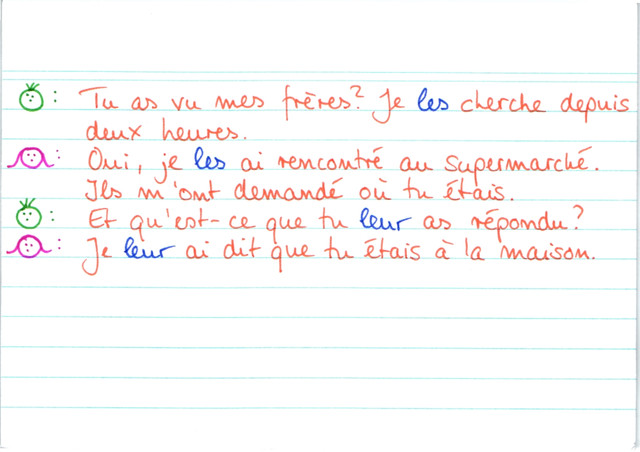 : Tu as vu mes frères? Je les cherche depuis
deux heures.
: Oui, je les ai rencontré au supermarché.
Ils m'ont demandé où tu étais.
: Et qu'est-ce que tu leur as répondu?
: Je leur ai dit que tu étais à la maison.